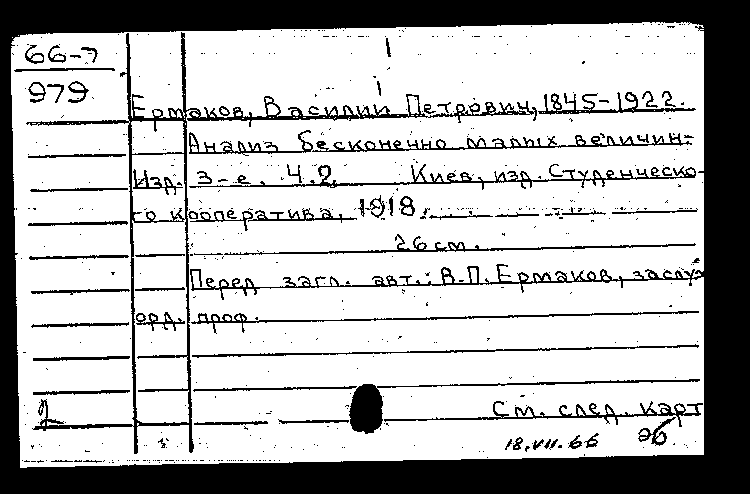 66-7
979
Ермаков, Василий Петрович, 1845-1922.
Анализ бесконечно малых величин.
Изд. 3-е. Ч.2. Киев, изд. Студенческо-
го кооператива, 1918.
26 см.
Перед загл. авт.: В.П. Ермаков, заслуж
орд. проф.
2
См. след. карт
18.VII.66